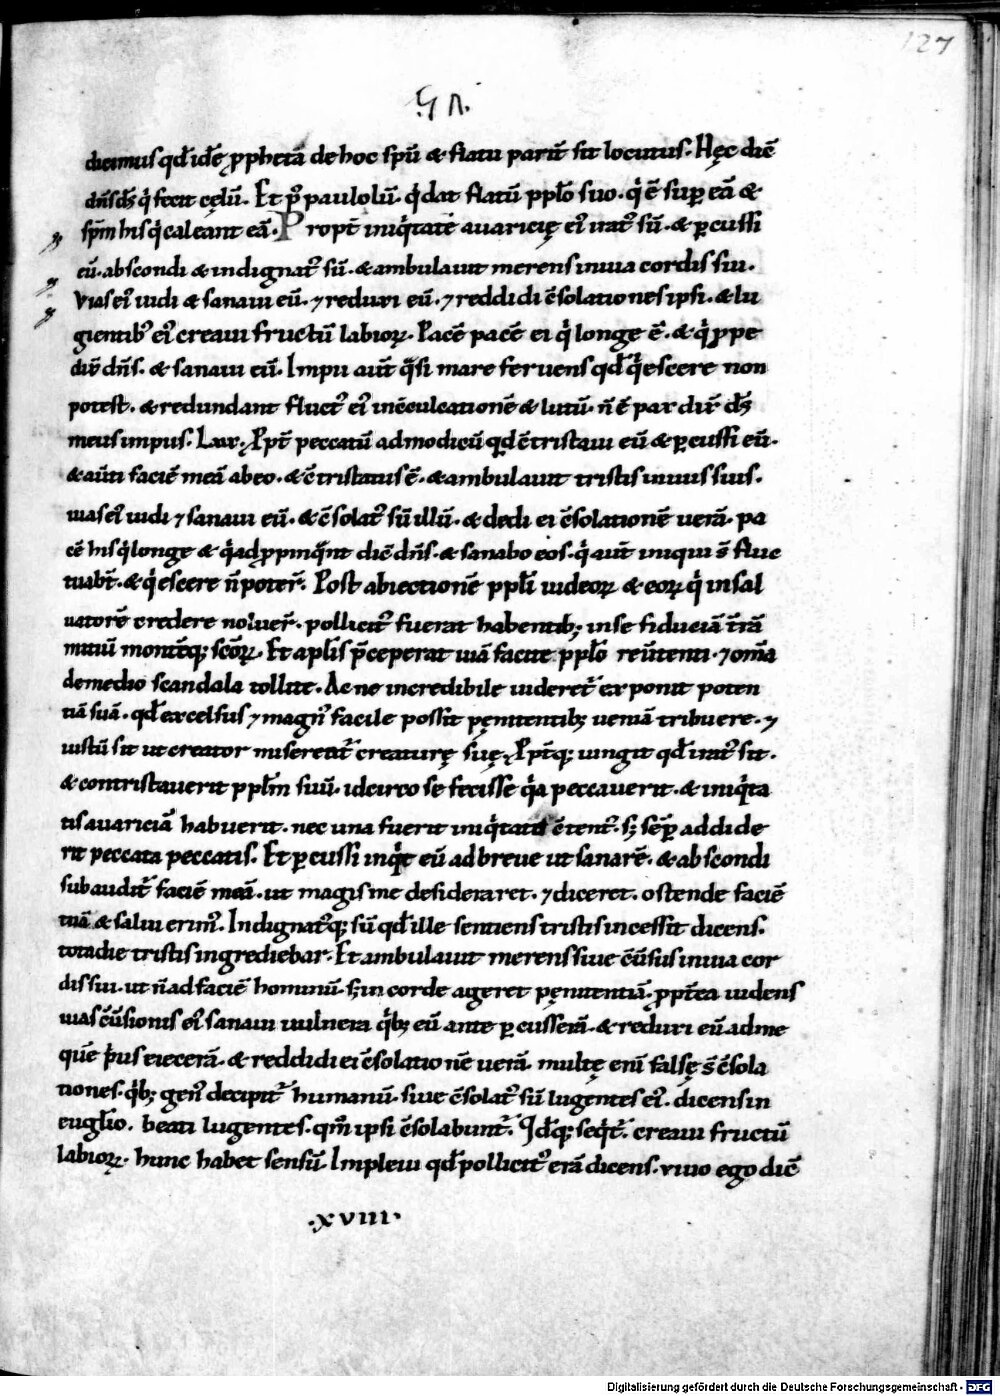 127
dicimus qđ idē p̱phetā de hoc sp̄u & flatu pariť sit locutus. Hęc dic̄
dn̄s ds̄ q' fecit cęlū. Et p' paululū. q' dat flatū pplo suo. q' ē sup eā &
sp̄m his q' caleant eā. Propť iniq'tatē auaricię ei' irat' sū. & p̱cussi
eū. abscondi & indignat' sū. & ambulauit merens in uia cordis sui.
Vias ei' uidi & sanaui eū. ⁊ reduxi eū. ⁊ reddidi c̄solationes ipsi. & lu
gientib' ei' creaui fructū labioꝝ. Pacē pacē ei q' longe ē. & q' p̱pe
dix̄ dn̄s. & sanaui eū. Impii auť q̄si mare feruens qđ q'escere non
potest. & redundant fluct' ei' in c̄culcationē & lutū. n̄ ē pax dix̄ ds̄
meus impiis. Lxx. P̱pť peccatū admodicū qđ c̄tristaui eū & p̱cussi eū.
& auťi faciē meā ab eo. & c̄tristatus ē. & ambulauit tristis in uiis suis.
uias ei' uidi ⁊ sanaui eū. & c̄solat' sū illū. & dedi ei c̄solationē uerā. pa
cē his q' longe & q' adp̱pinq̄nt dic̄ dn̄s. & sanabo eos. q' auť iniqui s̄ fluc
tuabť. & q'escere n̄ poteř. Post abiectionē ppli iudeoꝝ & eoꝝ q' in sal
uatorē credere noluer̄. pollicit' fuerat habentib; in se fiduciā t̄rā
mitiū montēq; sc̄oꝝ. Et aplis p̄ceperat uiā facite pplo reūtenti. ⁊ om̄a
de medio scandala tollite. Ac ne incredibile uideret' exponit poten
tiā suā. qđ excelsus ⁊ magn' facile possit pęnitentib; ueniā tribuere. ⁊
iustū sit ut creator misereat' creaturę suę. P̱pťq; iungit qđ irat' sit.
& contristauerit pplm suū. idcirco se fecisse q'a peccauerit. & iniq'ta
tis auariciā habuerit. nec una fuerit iniq'tate c̄tent'. s; sēp addide
rit peccata peccatis. Et p̱cussi inq't eū ad breue ut sanarē. & abscondi
subaudit' faciē meā. ut magis me desideraret. ⁊ diceret. ostende faciē
tuā & salui erim'. Indignat'q; sū qđ ille sentiens tristis incessit dicens.
tota die tristis ingrediebar. Et ambulauit merens siue c̄ūsus in uia cor
dis sui. ut n̄ ad faciē hominū. s; in corde ageret pęnitentiā. p̱pťea uidens
uias c̄ūsionis ei' sanaui uulnera q'b; eū ante p̱cusserā. & reduxi eū ad me
quē p'us eiecerā. & reddidi ei c̄solationē uerā. multę eni falsę s̄ c̄sola
tiones. q'b; gen' decipit' humanū. siue c̄solat' sū lugentes ei'. dicens in
euglio. beati lugentes. qm̄ ipsi c̄solabunt'. Idq; seq't'. creaui fructū
labioꝝ. hunc habet sensū. Impleui qđ pollicit' erā dicens. uiuo ego dic̄
.xviii.
Digitalisierung gefördert durch die Deutsche Forschungsgemeinschaft - DFG